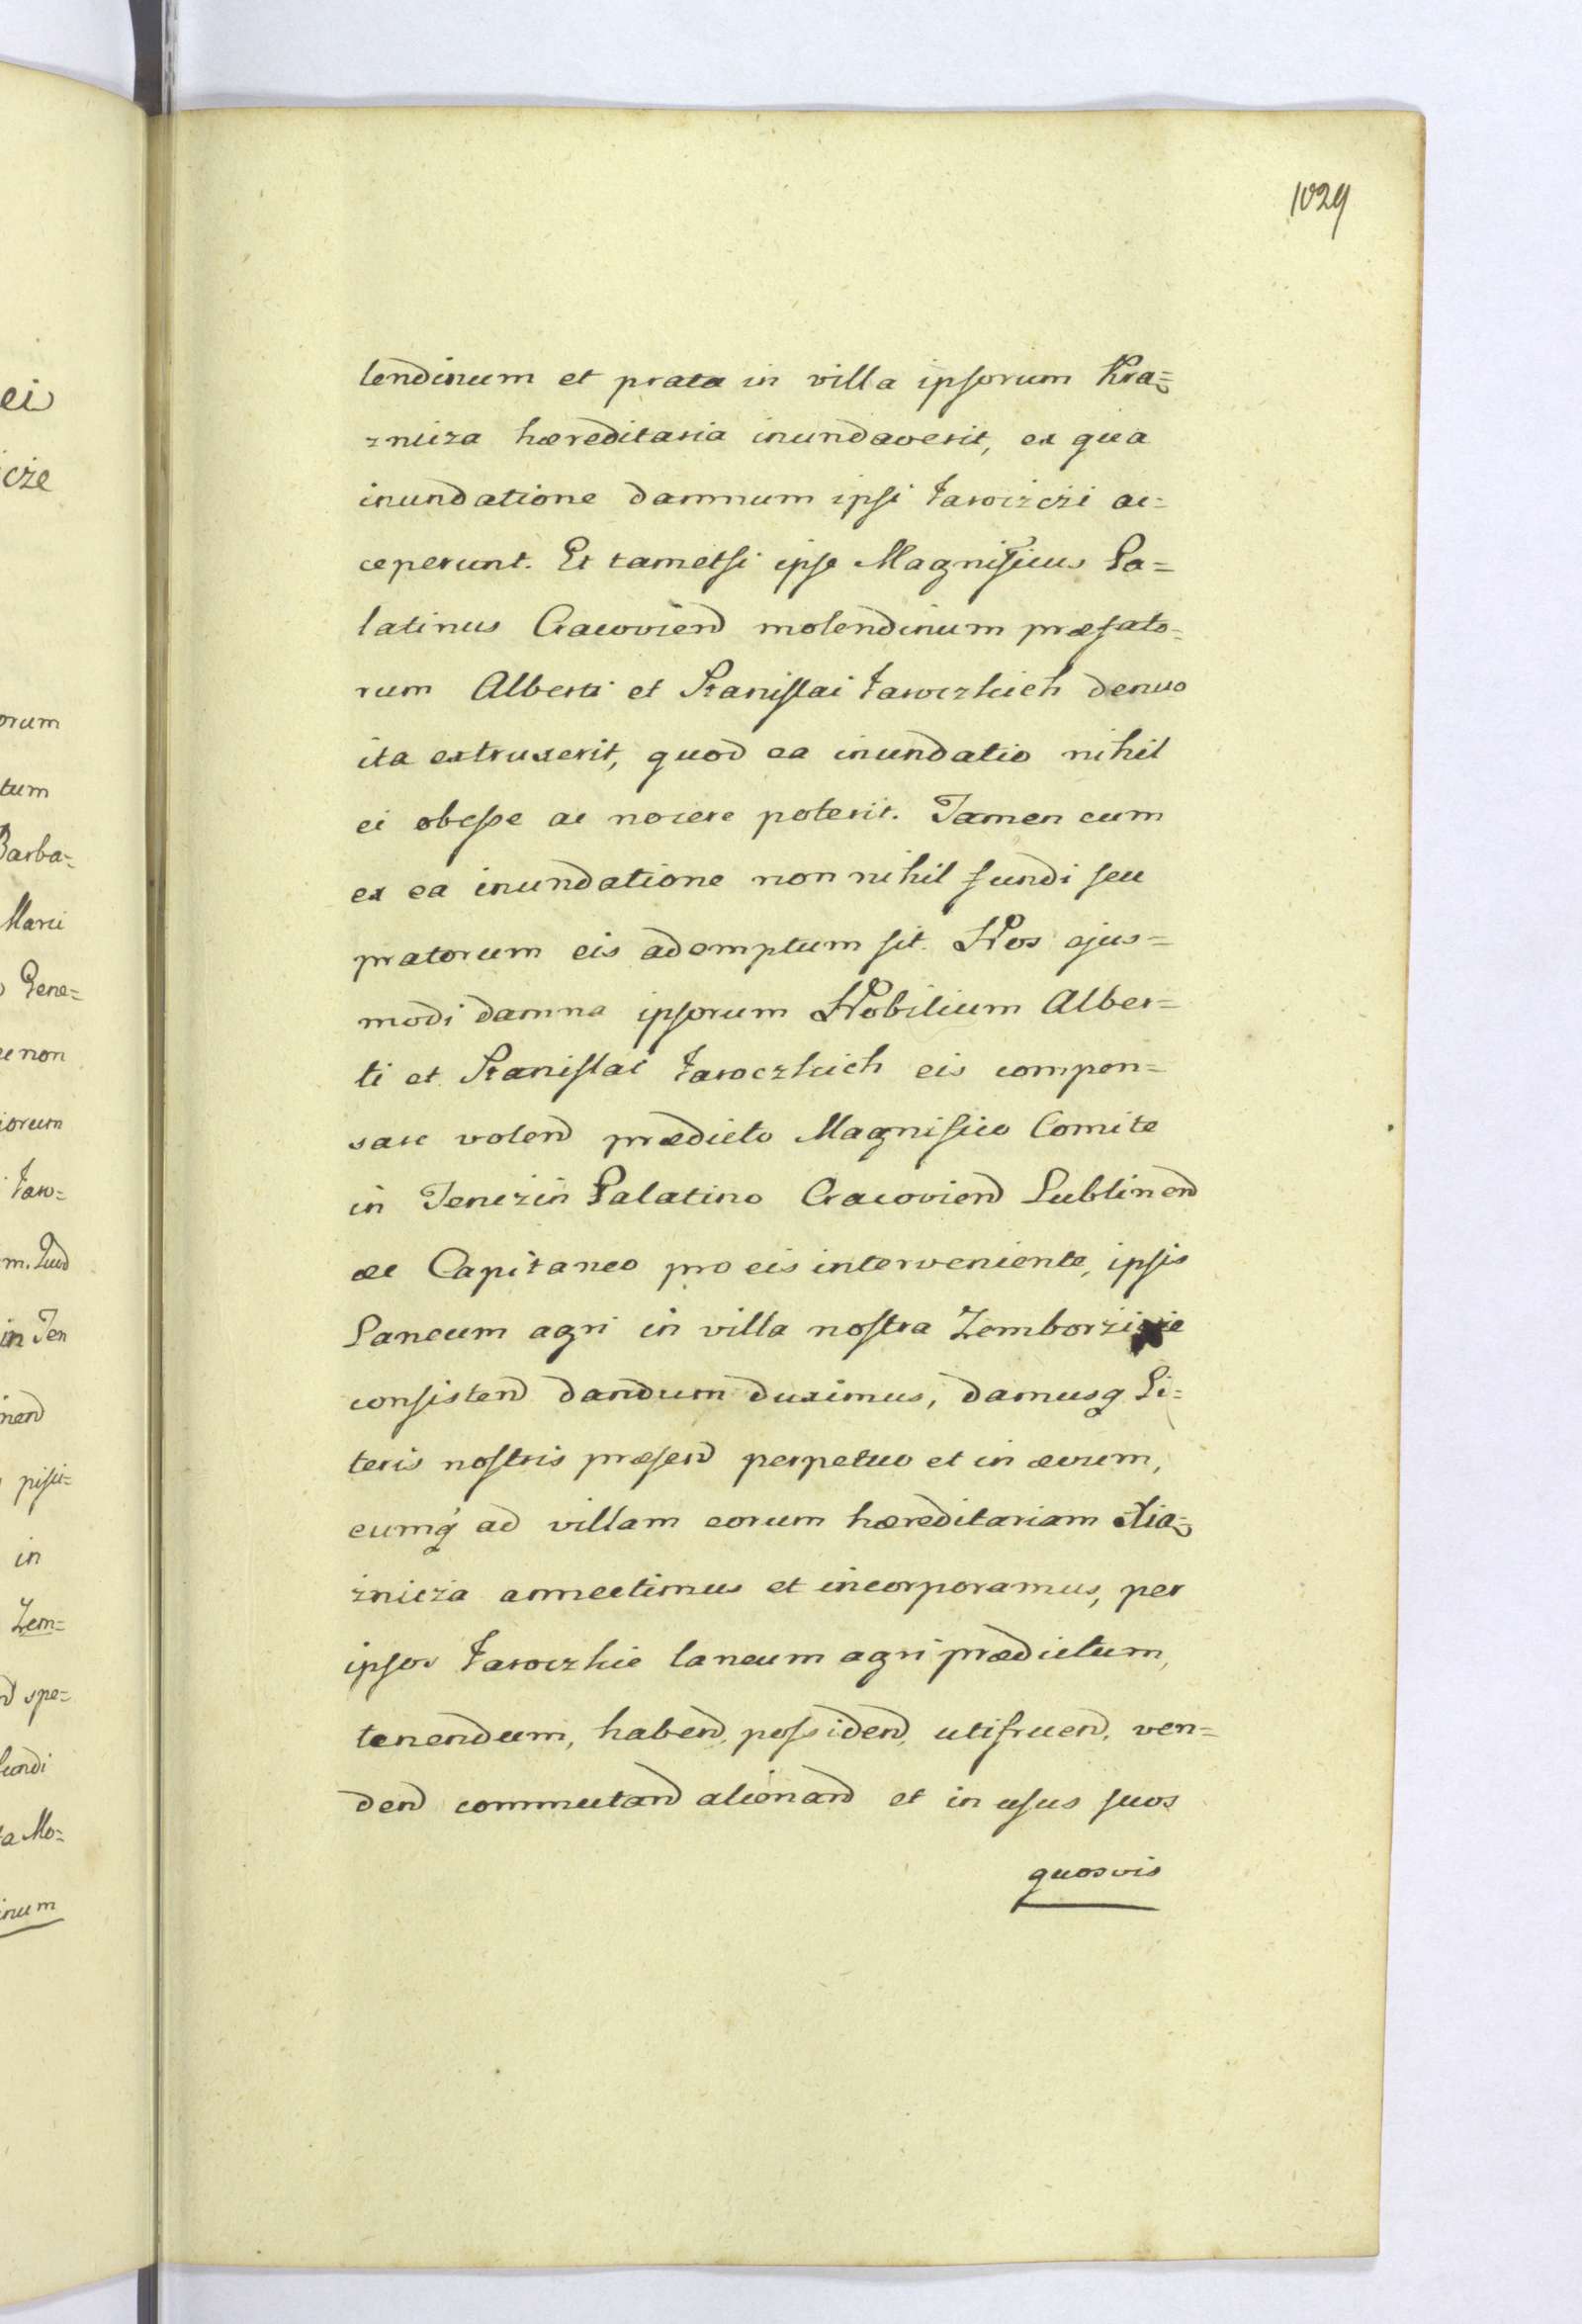 1029
lendinum et prata in villa ipsorum Kra=
znicza hæreditaria inundaverit, ex qua
inundatione damnum ipsi Jawiżczi ac=
ceperunt. Et tametsi ipse Magnificus Pa=
latinus Cracovień molendinum præfato=
rum Alberti et Stanislai Jawczkich denuo
ita extruxerit, quod ea inundatio nihil
ei obesse ac nocere poterit. Tamen cum
ex ea inundatione non nihil fundi seu
pratorum eis ademptum sit. Nos ejus=
modi damna ipsorum Nobilium Alber=
ti et Stanislai Jawczkich eis compen=
sare volend prædicto Magnifico Comite
in Tenczin Palatino Cracoviend Lublinend
ac Capitaneo pro eis interveniente, ipsis
Laneum agri in villa nostra
consistend dandum duximus, damusq Li=
teris nostris præsend perpetuo et in ævum,
eumq ad villam eorum hæreditariam
żnicza annectimus et incorporamus, per
ipsos Jawczkie laneum agri prædictum,
tenendum, habend, possidend, utifruend, ven=
dend commutand alienand et in usus suos
quosvis
ei
cże
orum
tum
Barba=
Marci
Gene=
non
iorum
Jaw=
in Ten
nend
pisci=
in
Zem=
spe=
fundi
ta Mo=
inum